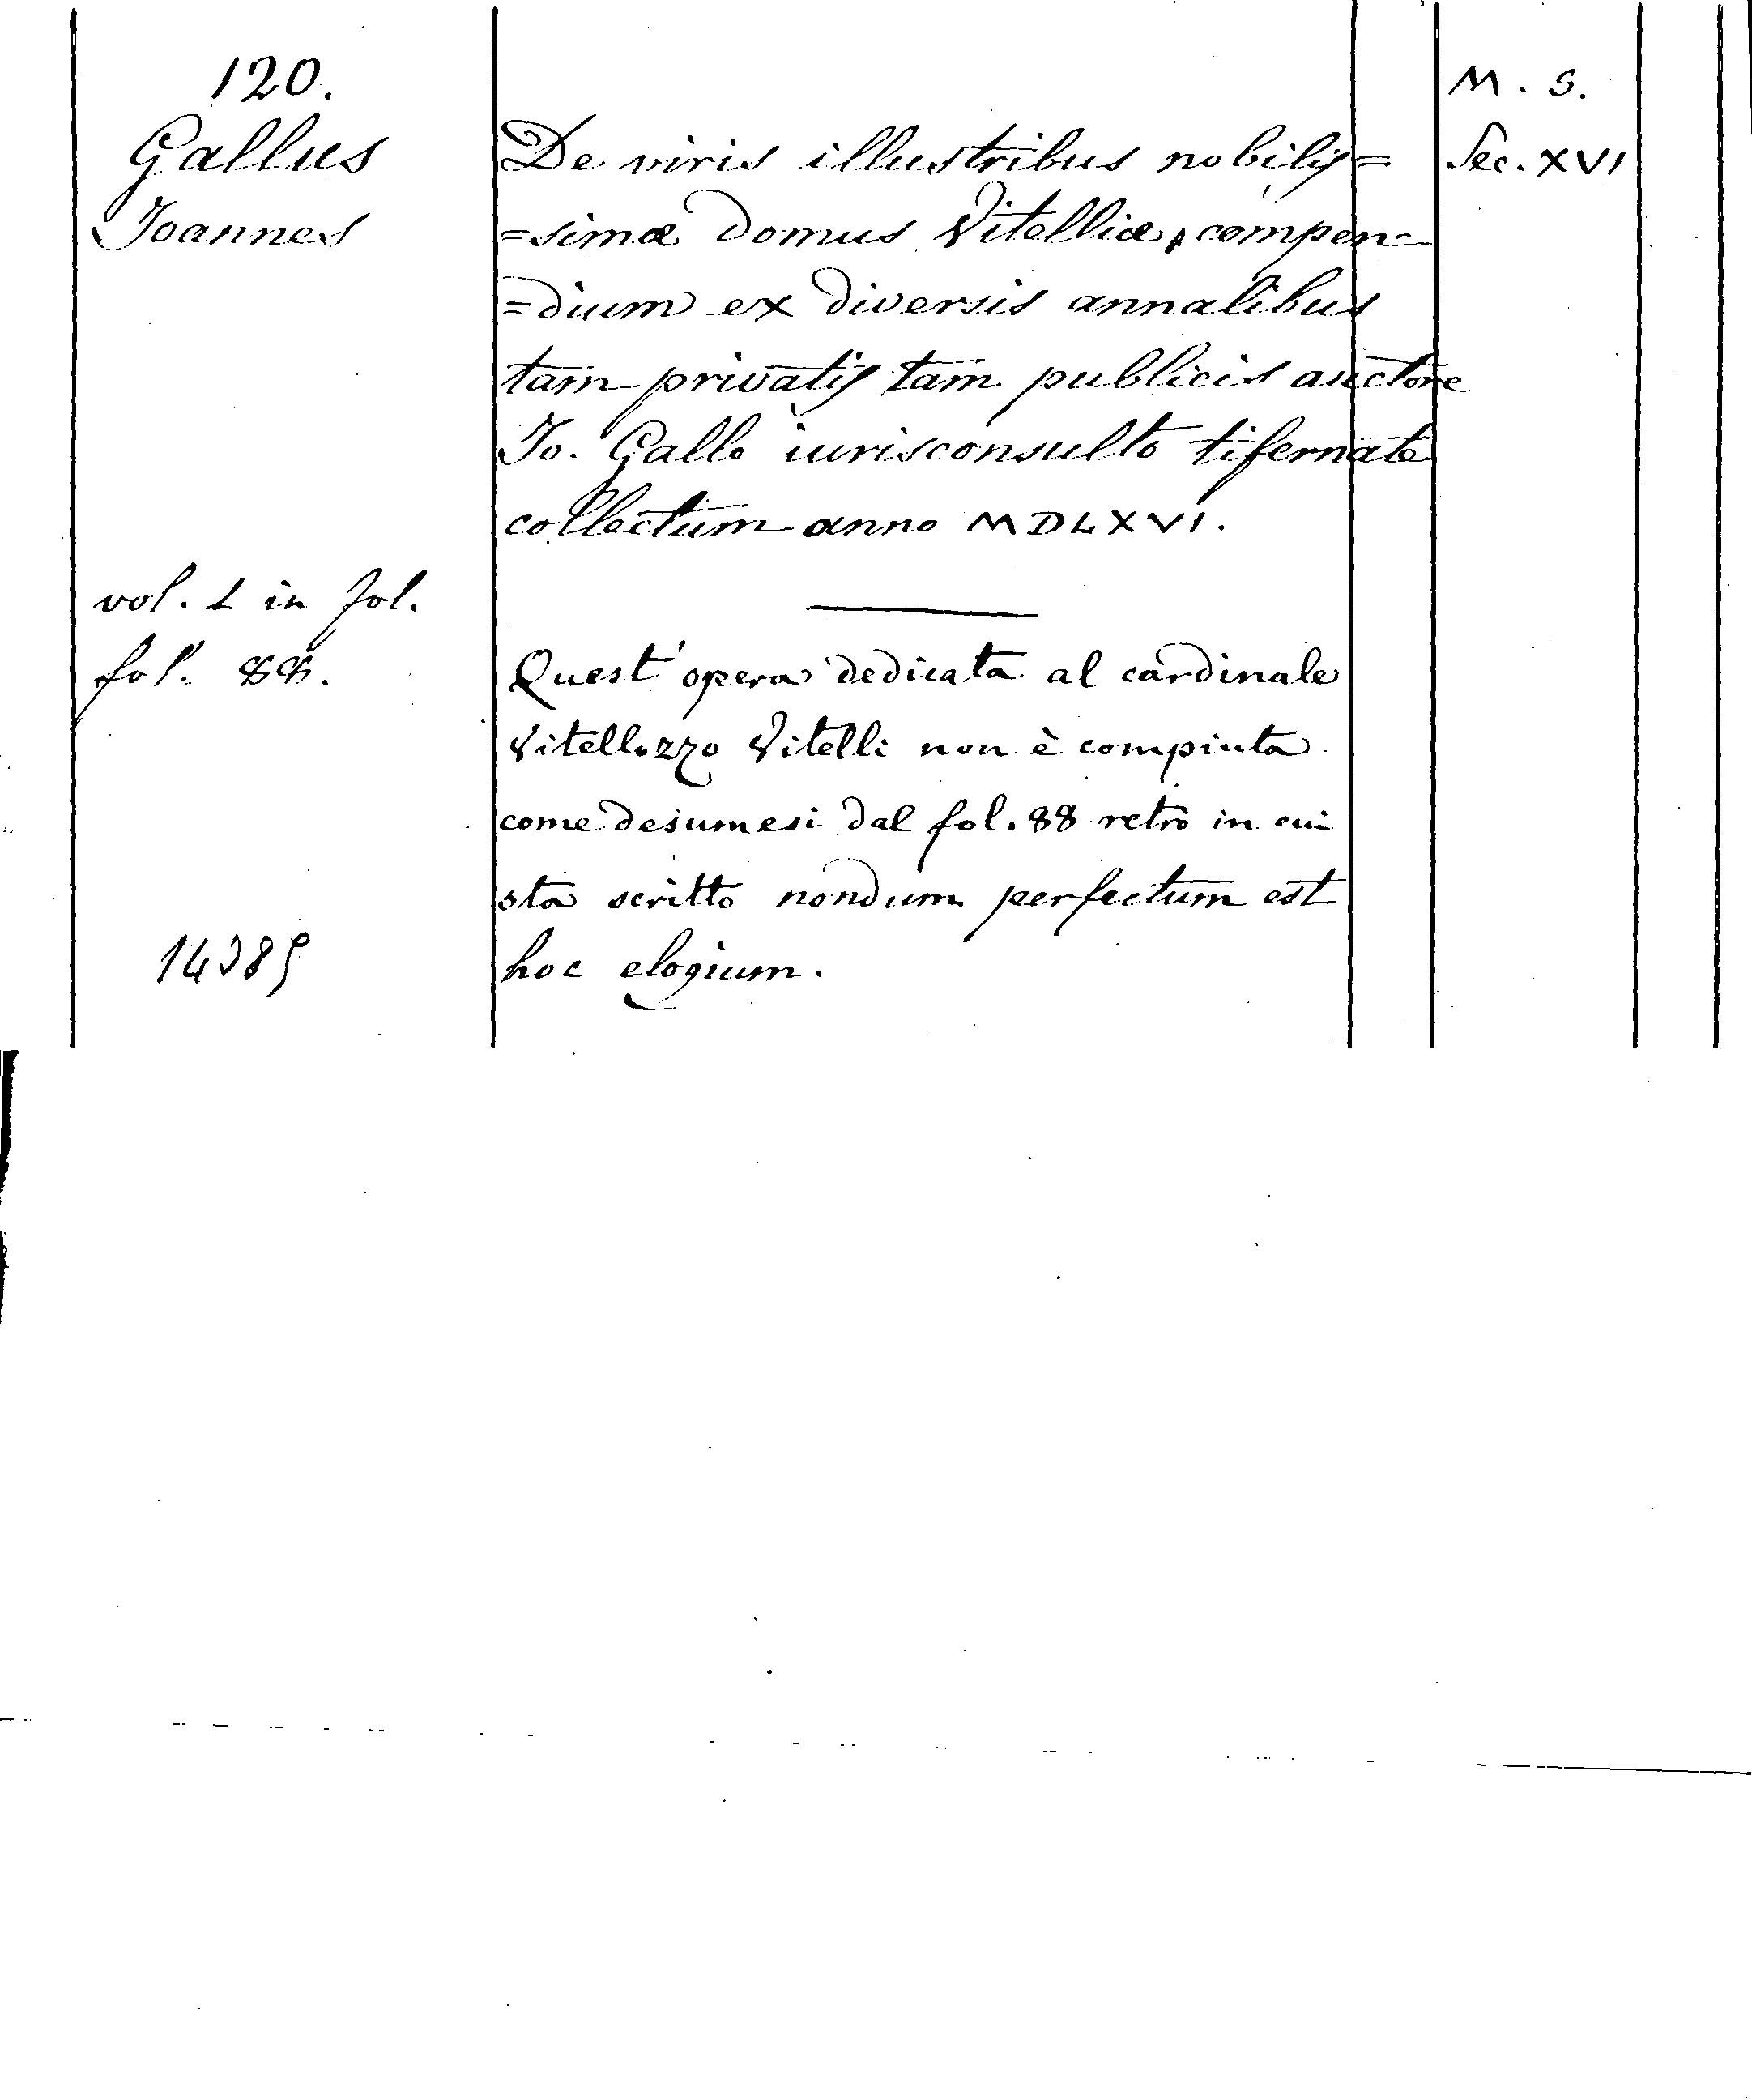 120.
Gallus
Joannes
De viris illustribus nobilis=
=simæ domus Vitelliæ, compen=
=dium ex diversis annalibus
tam privatis tam publicis auctore
Jo. Gallo iurisconsulto tifernate
collectum anno MDLXVI.
M. S.
Sec. XVI
vol. 1 in fol.
fol. 88.
Quest'opera dedicata al cardinale
Vitellozzo Vitelli non è compiuta
come desumesi dal fol. 88 retro in cui
sta scritto nondum perfectum est
hoc elogium.
14385